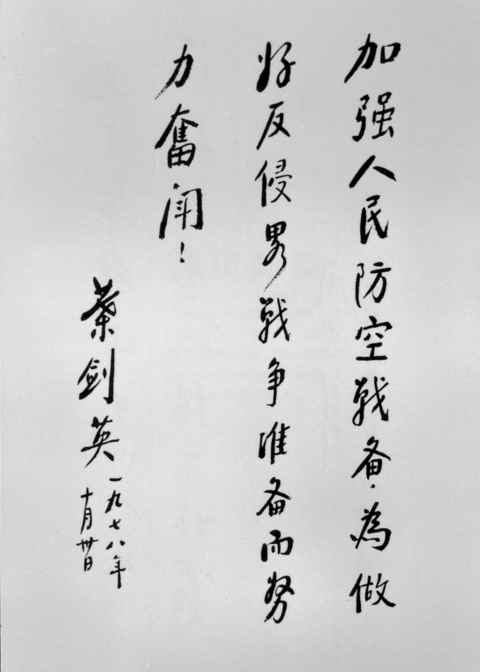 加强人民防空战备，為做
好反侵畧战争准备而努
力奮闘！
葉剑英
一九七八年
十月卅日